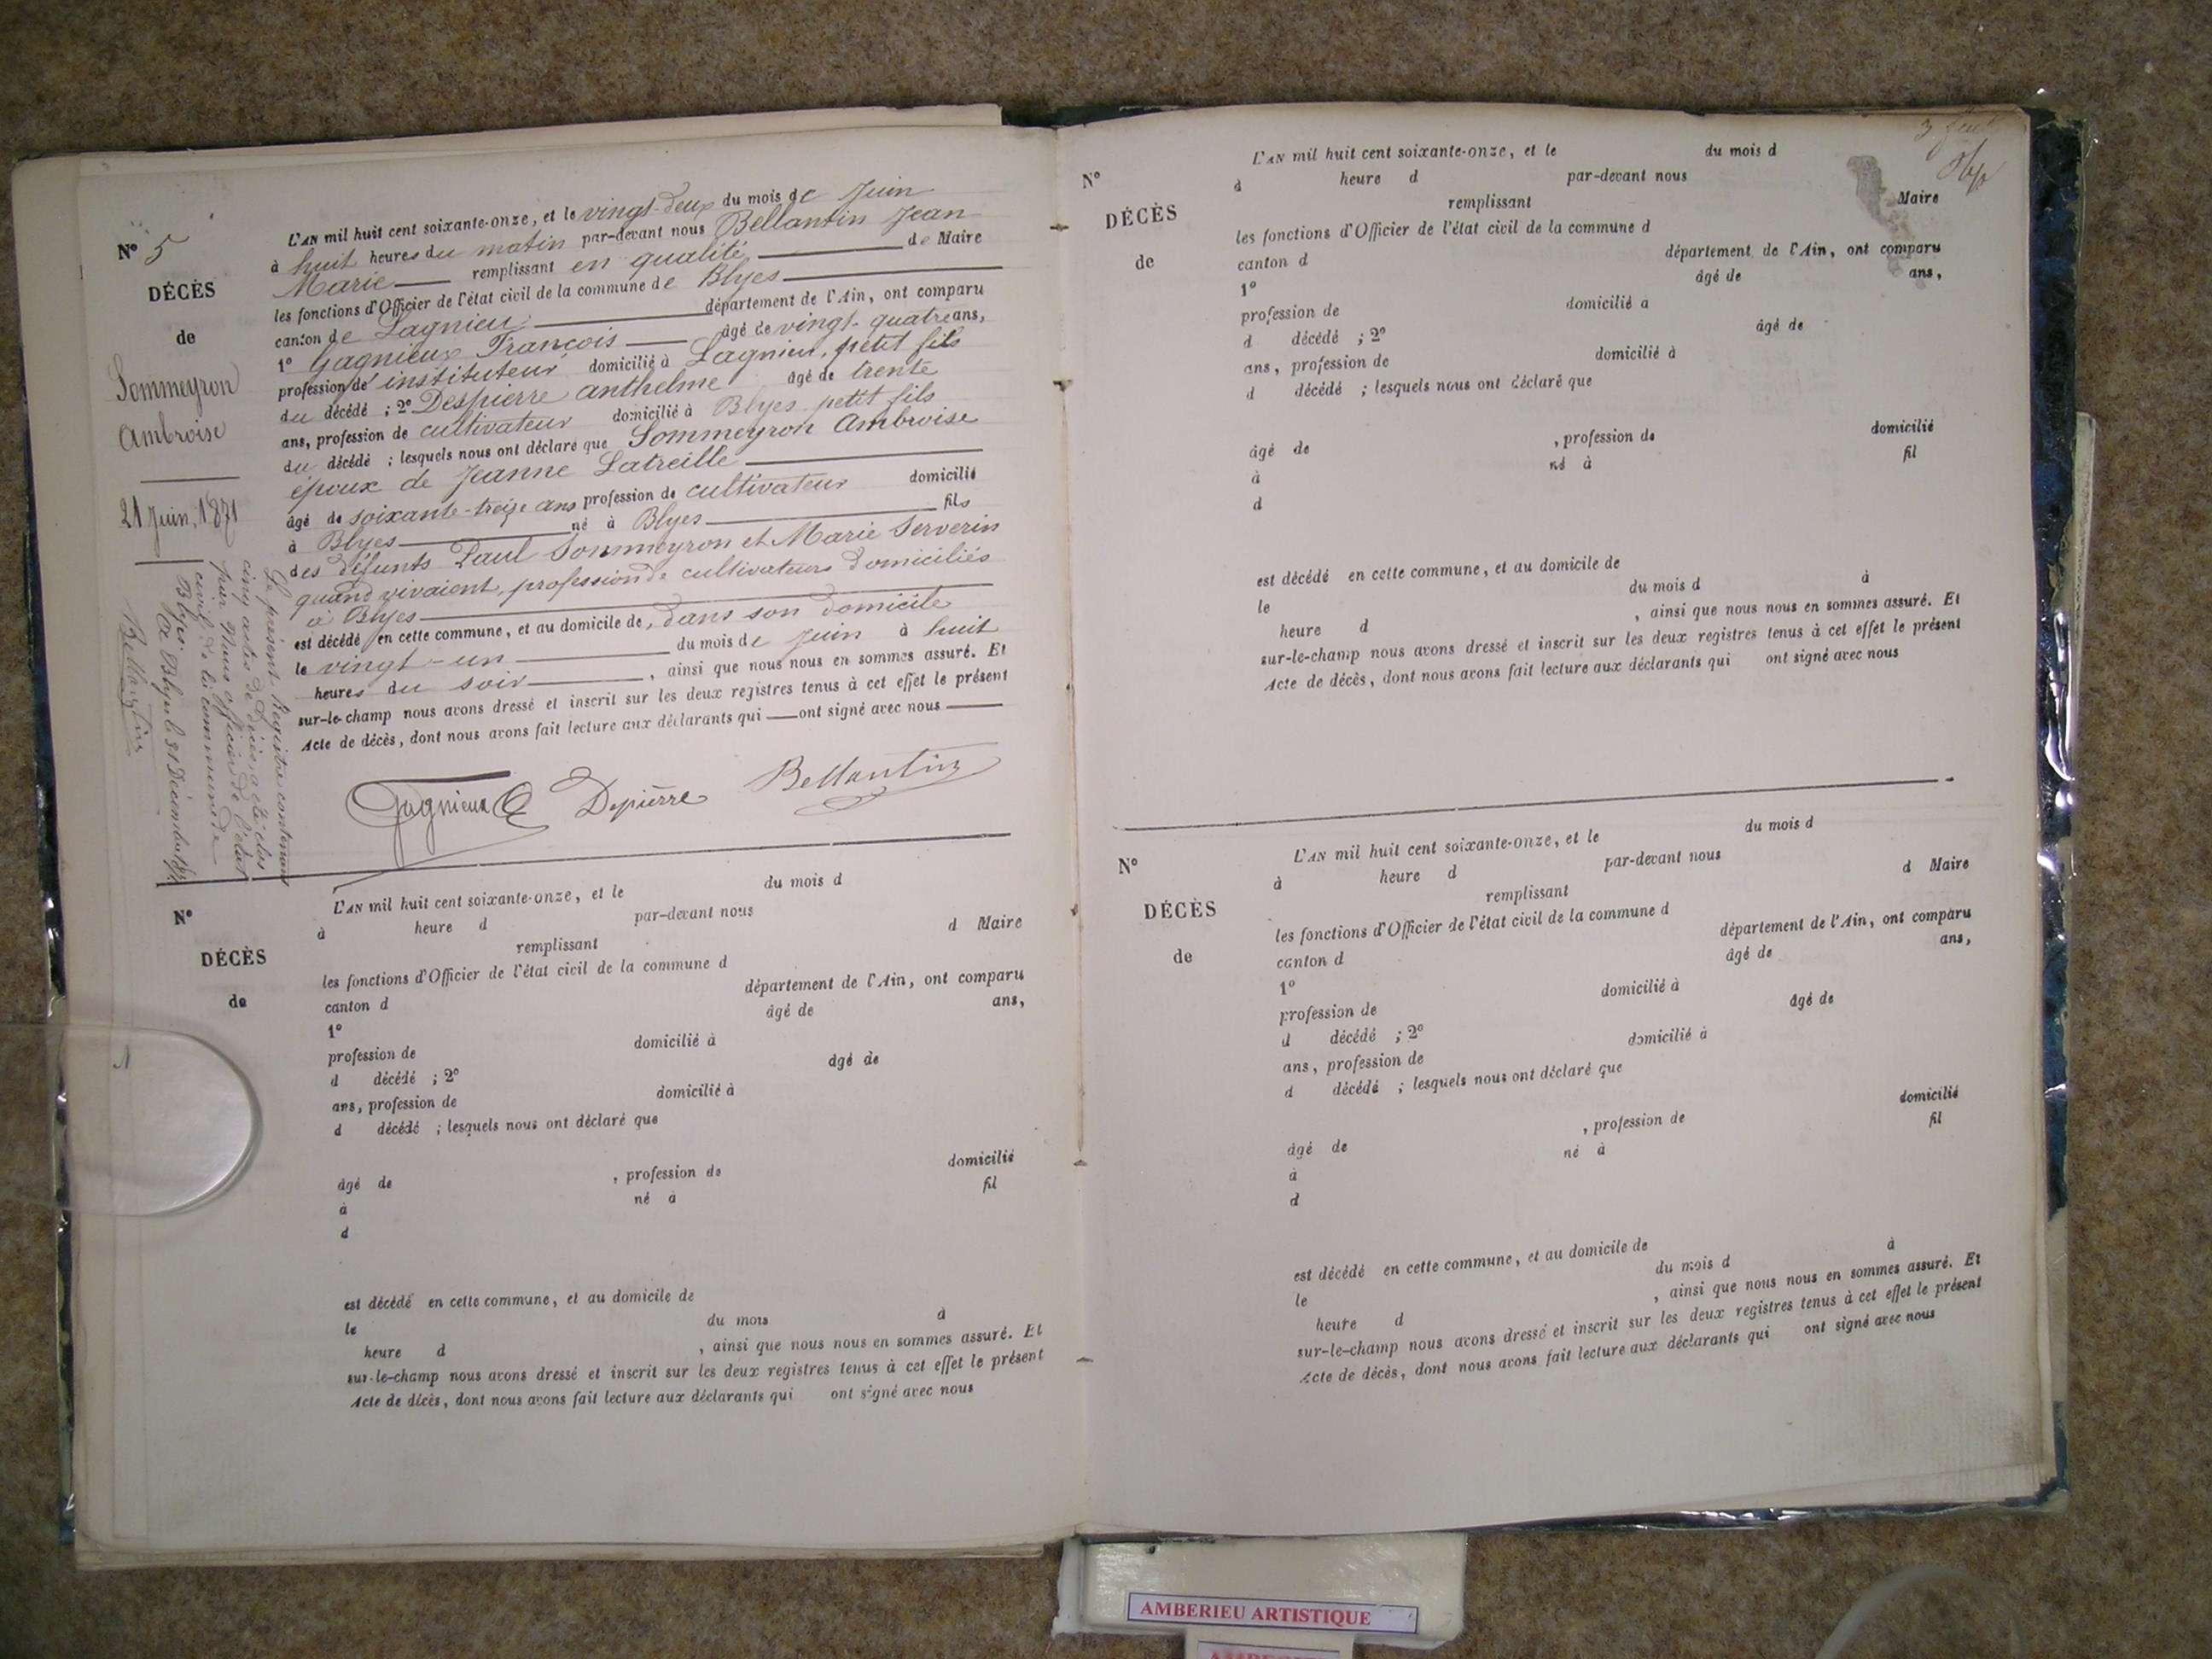 N° 5
DÉCÈS
de
Sommeyron
Ambroise
21 Juin, 1871
L'AN mil huit cent soixante-onze, et le vingt-deux du mois de Juin
à huit heures du matin par-devant nous Bellantin Jean
Marie remplissant en qualité de Maire
les fonctions d'Officier de l'état civil de la commune de Blyes
canton de Lagnieu département de l'Ain, ont comparu
1° Gagnieux François âgé de vingt-quatre ans,
profession d'instituteur domicilié à Lagnieu, petit fils
du décédé ; 2° Despierre anthelme âgé de trente
ans, profession de cultivateur domicilié à Blyes petit fils
du décédé ; lesquels nous ont déclaré que Sommeyron Ambroise
époux de Jeanne Latreille
âgé de soixante-treize ans profession de cultivateur domicilié
à Blyes né à Blyes fils
des défunts Paul Sommeyron et Marie Serverin
quand vivaient, profession de cultivateurs domiciliés
à Blyes
est décédé en cette commune, et au domicile de, dans son domicile
le vingt-un du mois de Juin à huit
heures du soir, ainsi que nous nous en sommes assuré. Et
sur-le-champ nous avons dressé et inscrit sur les deux registres tenus à cet effet le présent
Acte de décès, dont nous avons fait lecture aux déclarants qui ont signé avec nous
Gagnieux Depierre Bellantin
Le présent Registre contenant
cinq actes de Décès, a été clos
par nous officier de l'état
civil de la commune de
Blyes
A Blyes le 31 Décembre 1871
Bellantin
N°
DÉCÈS
de
L'AN mil huit cent soixante-onze, et le du mois d
à heure d par-devant nous
remplissant d Maire
les fonctions d'Officier de l'état civil de la commune d
canton d département de l'Ain, ont comparu
1° âgé de ans,
profession de domicilié à
d décédé ; 2° âgé de
ans, profession de domicilié à
d décédé ; lesquels nous ont déclaré que
âgé de , profession de domicilié
à né à fil
d
est décédé en cette commune, et au domicile de
le du mois à
heure d , ainsi que nous nous en sommes assuré. Et
sur-le-champ nous avons dressé et inscrit sur les deux registres tenus à cet effet le présent
Acte de décès, dont nous avons fait lecture aux déclarants qui ont signé avec nous
3
N°
DÉCÈS
de
L'AN mil huit cent soixante-onze, et le du mois d
à heure d par-devant nous
remplissant Maire
les fonctions d'Officier de l'état civil de la commune d
canton d département de l'Ain, ont comparu
1° âgé de ans,
profession de domicilié à
d décédé ; 2° âgé de
ans, profession de domicilié à
d décédé ; lesquels nous ont déclaré que
âgé de , profession de domicilié
à né à fil
d
est décédé en cette commune, et au domicile de
le du mois d à
heure d , ainsi que nous nous en sommes assuré. Et
sur-le-champ nous avons dressé et inscrit sur les deux registres tenus à cet effet le présent
Acte de décès, dont nous avons fait lecture aux déclarants qui ont signé avec nous
N°
DÉCÈS
de
L'AN mil huit cent soixante-onze, et le du mois d
à heure d par-devant nous
remplissant d Maire
les fonctions d'Officier de l'état civil de la commune d
canton d département de l'Ain, ont comparu
1° âgé de ans,
profession de domicilié à
d décédé ; 2° âgé de
ans, profession de domicilié à
d décédé ; lesquels nous ont déclaré que
âgé de , profession de domicilié
à né à fil
d
est décédé en cette commune, et au domicile de
le du mois d à
heure d , ainsi que nous nous en sommes assuré. Et
sur-le-champ nous avons dressé et inscrit sur les deux registres tenus à cet effet le présent
Acte de décès, dont nous avons fait lecture aux déclarants qui ont signé avec nous
AMBERIEU ARTISTIQUE